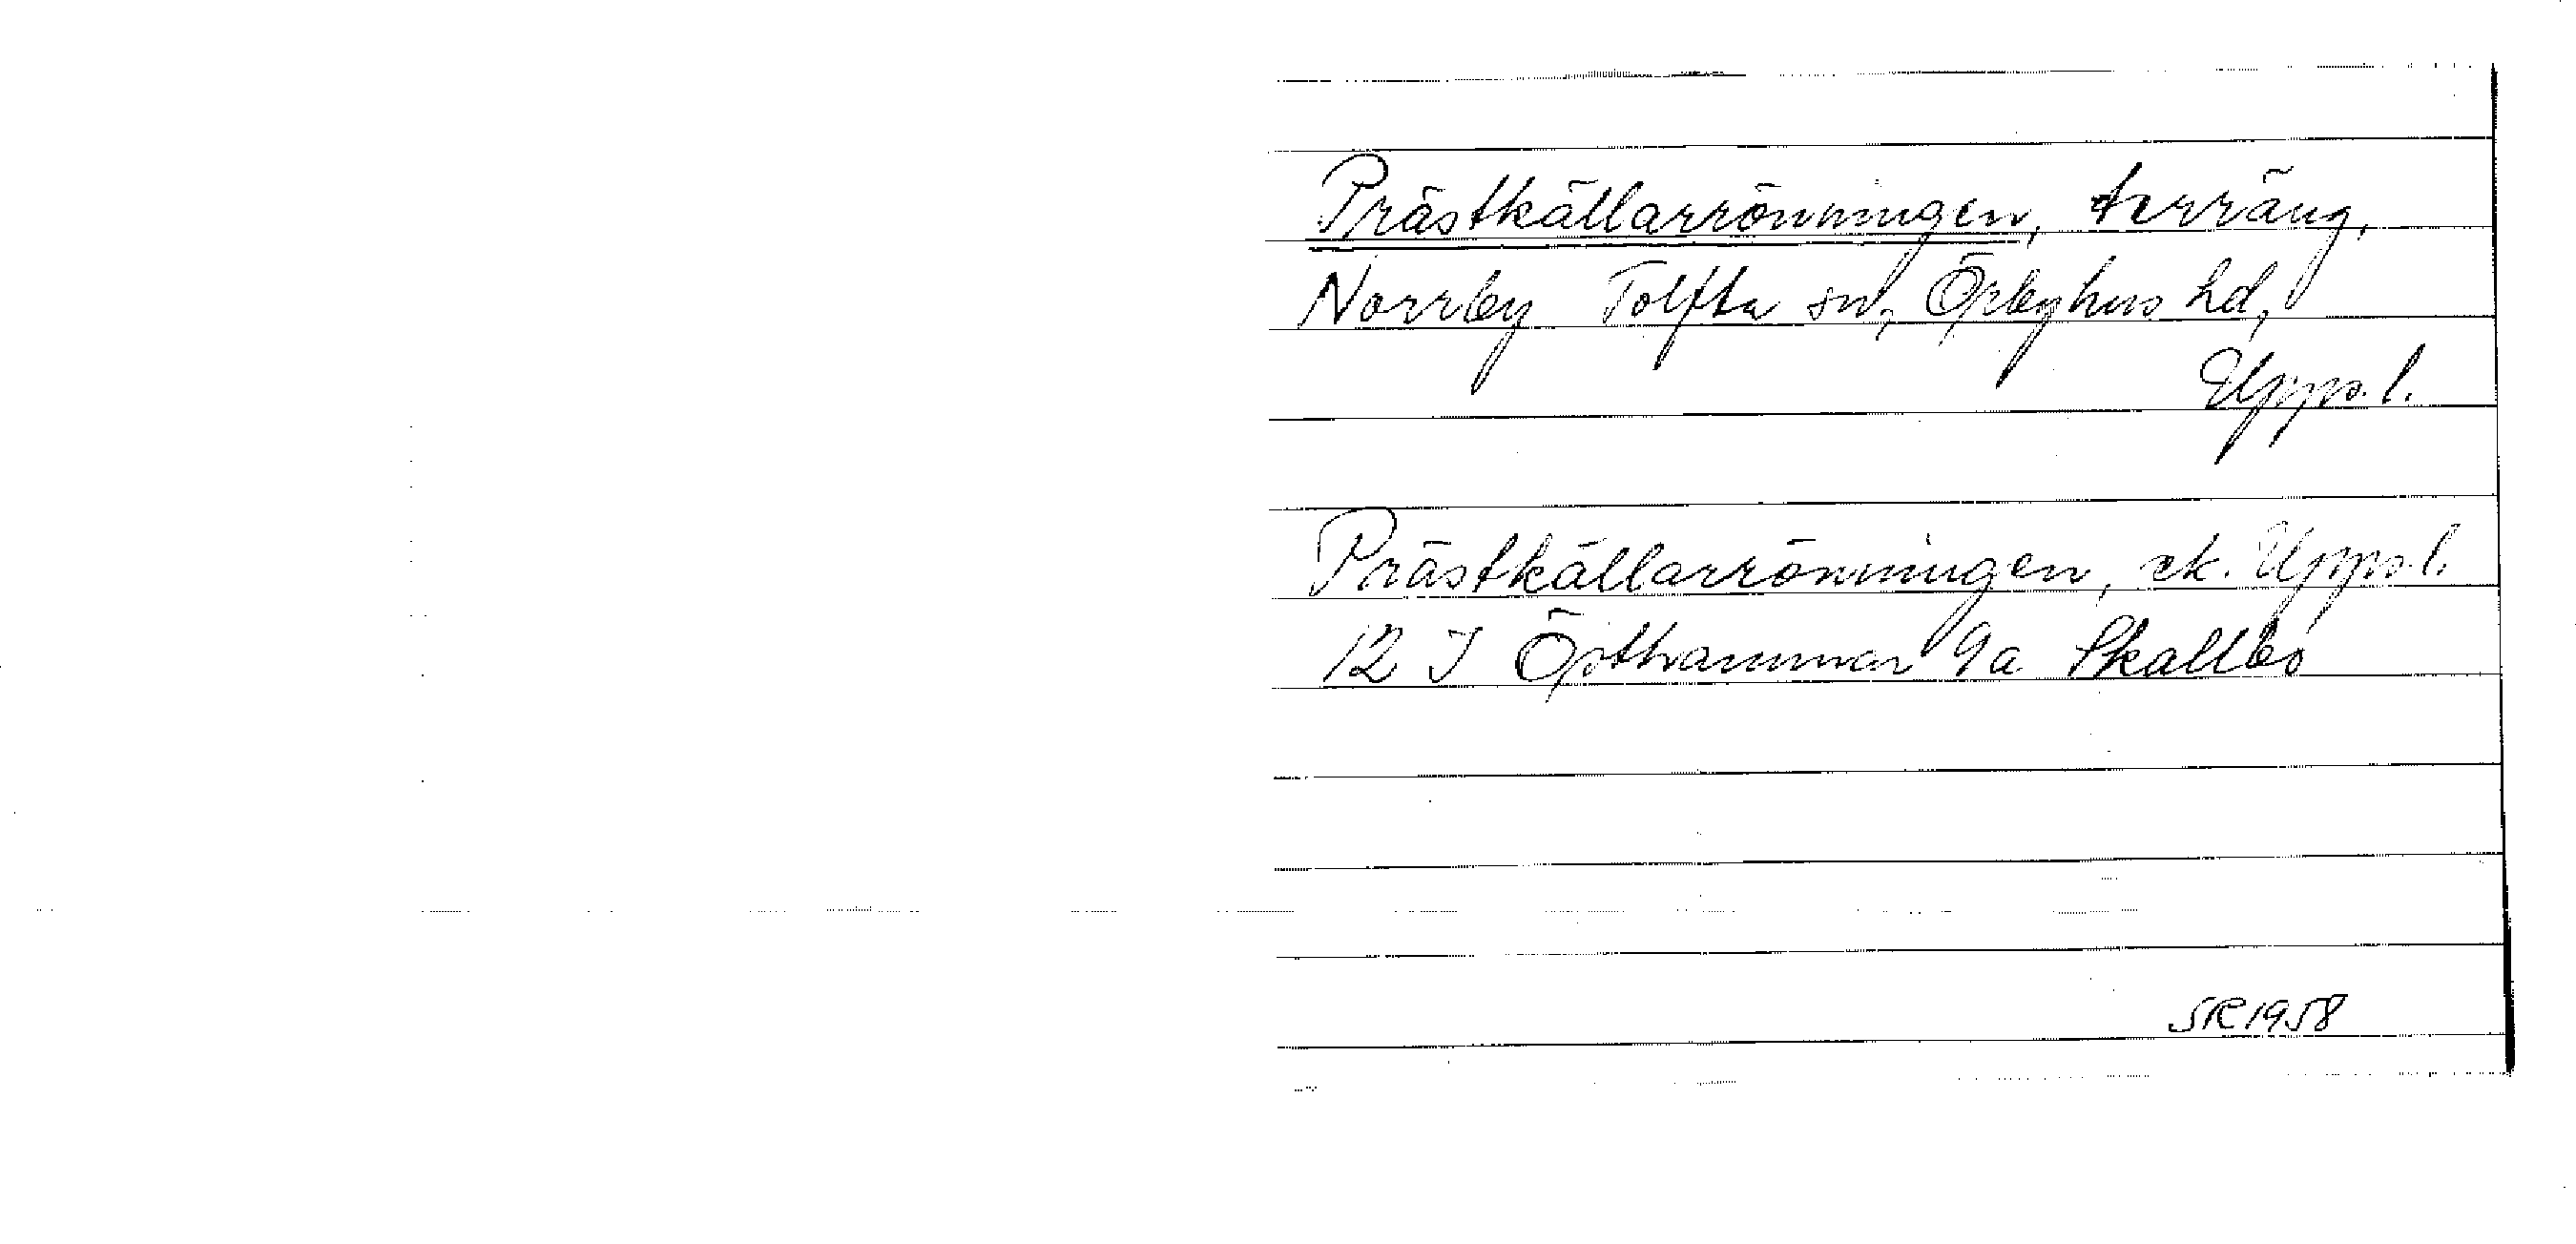 Prästkällarrönningen, terräng,
Norrby Tolfta sn, Örbyhus hd,
Upps. l.
Prästkällarrönningen, ek. Upps l.
12 I Östhammar 9a Skallbo
SR 1958